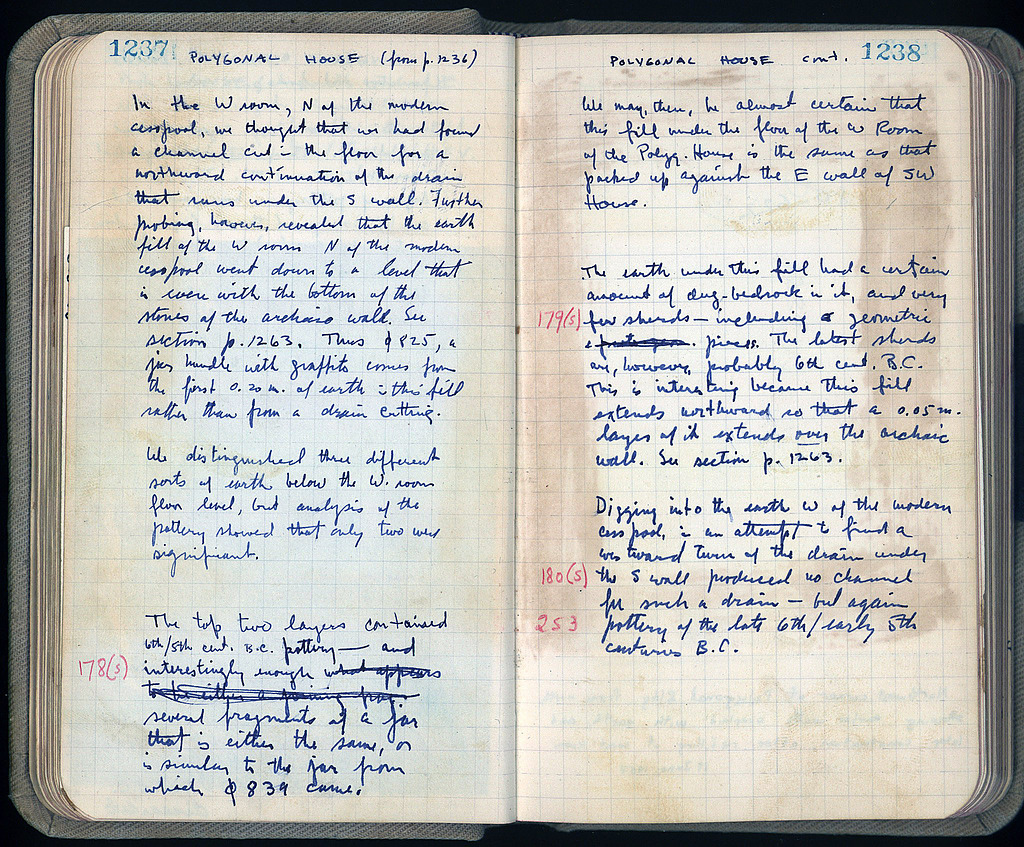 1237
POLYGONAL HOUSE (from p. 1236)
In the W room, N of the modern
cesspool, we thought that we had found
a channel cut in the floor for a
northward continuation of the drain
that runs under the S wall. Further
probing, however, revealed that the earth
fill of the W room N of the modern
cesspool went down to a level that
is even with the bottom of the
stones of the archaic wall. See
section p. 1263. Thus ϕ 825, a
jar handle with graffito comes from
the first 0.20 m. of earth in this fill
rather than from a drain cutting.
We distinguished three different
sorts of earth below the W. room
floor level, but analysis of the
pottery showed that only two were
significant.
The top two layers contained
6th/5th cent. B.C. pottery — and
178(s) interestingly enough what appears
to be either a joining frag.
several fragments of a jar
that is either the same, or
is similar to the jar from
which ϕ 839 came.
1238
POLYGONAL HOUSE cont.
We may, then, be almost certain that
this fill under the floor of the W Room
of the Polyg. House is the same as that
packed up against the E wall of SW
House.
The earth under this fill had a certain
amount of dug-bedrock in it, and very
179(s) few sherds — including geometric
pieces. The latest sherds
are, however, probably 6th cent. B.C.
This is interesting because this fill
extends northward so that a 0.05 m.
layer of it extends over the archaic
wall. See section p. 1263.
Digging into the earth W of the modern
cesspool, in an attempt to find a
westward turn of the drain under
180(s) the S wall produced no channel
for such a drain — but again
253 pottery of the late 6th/early 5th
centuries B.C.